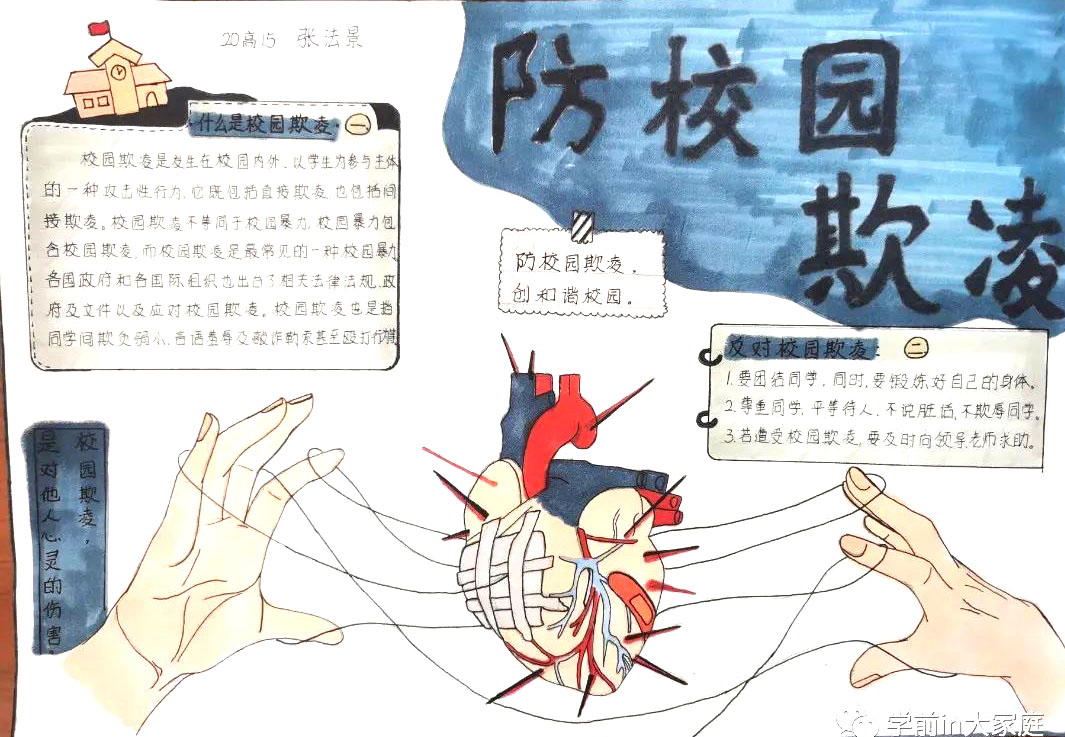 20高15 张法景
防校园
欺凌
什么是校园欺凌 一
校园欺凌是发生在校园内外、以学生为参与主体
的一种攻击性行为,它既包括直接欺凌,也包括间
接欺凌。校园欺凌不等同于校园暴力,校园暴力包
含校园欺凌,而校园欺凌是最常见的一种校园暴力
各国政府和各国际组织也出台了相关法律法规、政
府及文件以及应对校园欺凌。校园欺凌也是指
同学间欺负弱小、言语羞辱及敲诈勒索甚至殴打
防校园欺凌,
创和谐校园。
反对校园欺凌: 二
1.要团结同学,同时,要锻炼好自己的身体。
2.尊重同学,平等待人,不说脏话,不欺辱同学。
3.若遭受校园欺凌,要及时向领导老师求助。
校园欺凌,
是对他人心灵的伤害。
学前in大家庭